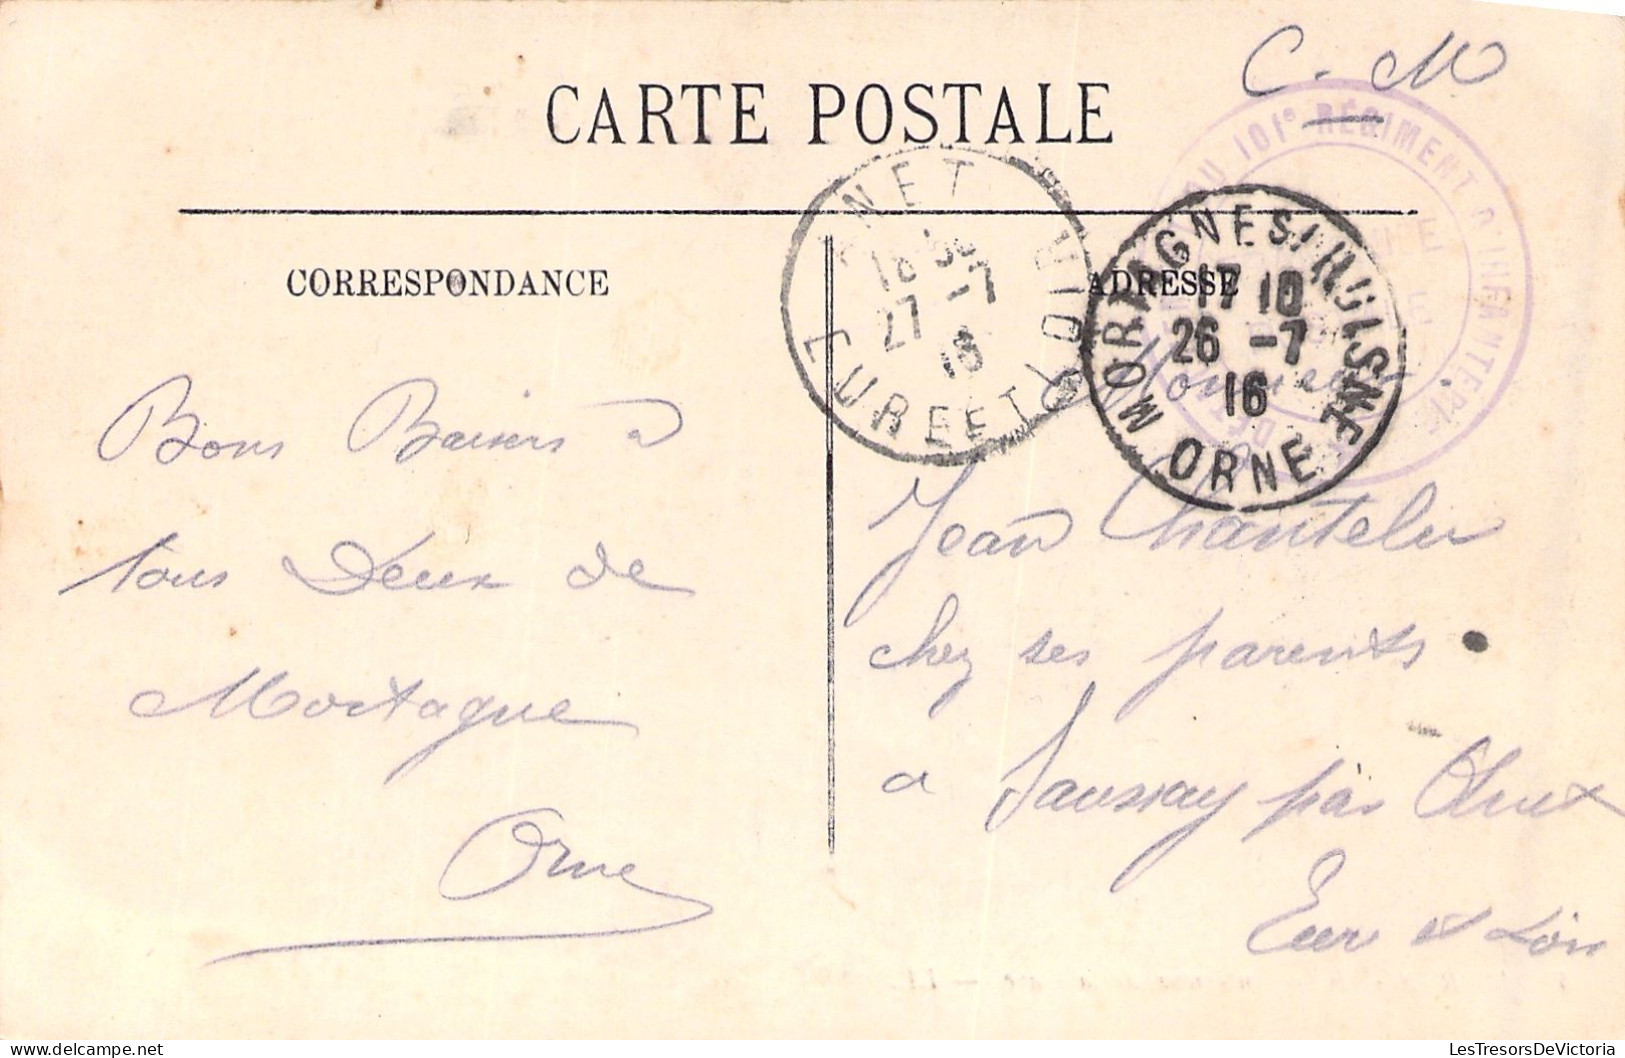 C. M
CARTE POSTALE
DU 101e RÉGIMENT D'INFANTERIE
ANET
18 30
27 -7
16
EURE ET LOIR
MORTAGNE S/ HUISNE
17 10
26 -7
16
ORNE
CORRESPONDANCE
ADRESSE
Bons Baisers a
tous Deux de
Mortagne
Orne
Monsieur
Jean Chantelu
chez ses parents
a Saussay par
Eure et Loir
LesTresorsDeVictoria